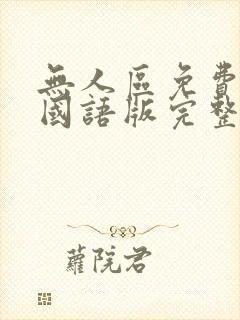 無人區免費
國語版完整
蘿院君